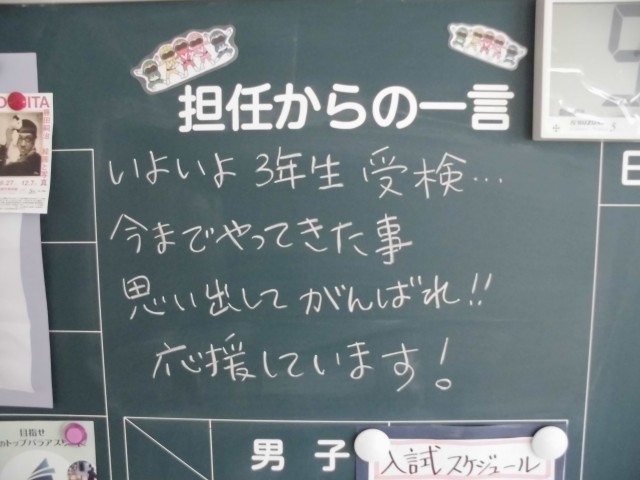 担任からの一言
いよいよ 3年生 受検…
今までやってきた事
思い出して がんばれ!!
応援しています!
男子
入試スケジュール
目指せ